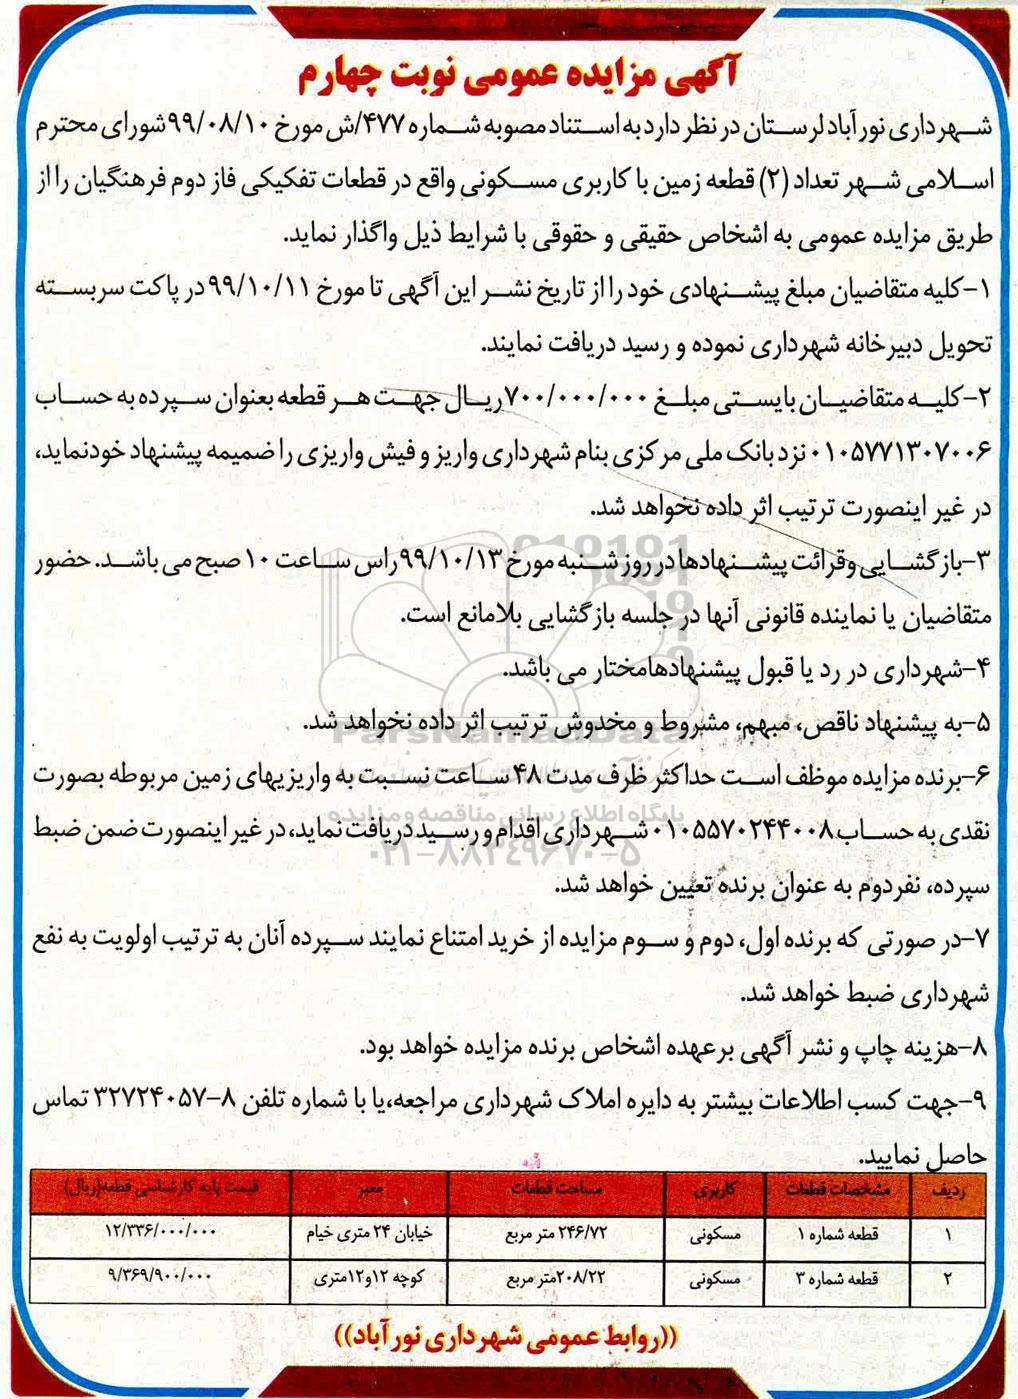 آگهی مزایده عمومی نوبت چهارم
شهرداری نورآباد لرستان در نظر دارد به استناد مصوبه شماره ۴۷۷/ش مورخ ۹۹/۰۸/۱۰ شورای محترم
اسلامی شهر تعداد (۲) قطعه زمین با کاربری مسکونی واقع در قطعات تفکیکی فاز دوم فرهنگیان را از
طریق مزایده عمومی به اشخاص حقیقی و حقوقی با شرایط ذیل واگذار نماید.
۱-کلیه متقاضیان مبلغ پیشنهادی خود را از تاریخ نشر این آگهی تا مورخ ۹۹/۱۰/۱۱ در پاکت سربسته
تحویل دبیرخانه شهرداری نموده و رسید دریافت نمایند.
۲-کلیه متقاضیان بایستی مبلغ ۷۰۰/۰۰۰/۰۰۰ ریال جهت هر قطعه بعنوان سپرده به حساب
۰۱۰۵۷۷۱۳۰۷۰۰۶ نزد بانک ملی مرکزی بنام شهرداری واریز و فیش واریزی را ضمیمه پیشنهاد خودنماید،
در غیر اینصورت ترتیب اثر داده نخواهد شد.
۳-بازگشایی وقرائت پیشنهادها در روز شنبه مورخ ۹۹/۱۰/۱۳ راس ساعت ۱۰ صبح می باشد. حضور
متقاضیان یا نماینده قانونی آنها در جلسه بازگشایی بلامانع است.
۴-شهرداری در رد یا قبول پیشنهادهامختار می باشد.
۵-به پیشنهاد ناقص، مبهم، مشروط و مخدوش ترتیب اثر داده نخواهد شد.
ParsNamadData
۶-برنده مزایده موظف است حداکثر ظرف مدت ۴۸ ساعت نسبت به واریزیهای زمین مربوطه بصورت
پایگاه اطلاع رسانی مناقصه و مزایده
نقدی به حساب ۰۱۰۵۵۷۰۲۴۴۰۰۸ شهرداری اقدام و رسید دریافت نماید، در غیر اینصورت ضمن ضبط
۰۲۱-۸۸۳۴۹۶۷۰-۵
سپرده، نفردوم به عنوان برنده تعیین خواهد شد.
۷-در صورتی که برنده اول، دوم و سوم مزایده از خرید امتناع نمایند سپرده آنان به ترتیب اولویت به نفع
شهرداری ضبط خواهد شد.
۸-هزینه چاپ و نشر آگهی برعهده اشخاص برنده مزایده خواهد بود.
۹-جهت کسب اطلاعات بیشتر به دایره املاک شهرداری مراجعه،یا با شماره تلفن ۸-۳۲۷۲۴۰۵۷ تماس
حاصل نمایید.
ردیف مشخصات قطعات کاربری مساحت قطعات معبر قیمت پایه کارشناسی قطعه(ریال)
۱ قطعه شماره ۱ مسکونی ۲۴۶/۷۲ متر مربع خیابان ۲۴ متری خیام ۱۲/۳۳۶/۰۰۰/۰۰۰
۲ قطعه شماره ۳ مسکونی ۲۰۸/۲۲متر مربع کوچه ۱۲و۱۲متری ۹/۳۶۹/۹۰۰/۰۰۰
((روابط عمومی شهرداری نورآباد))